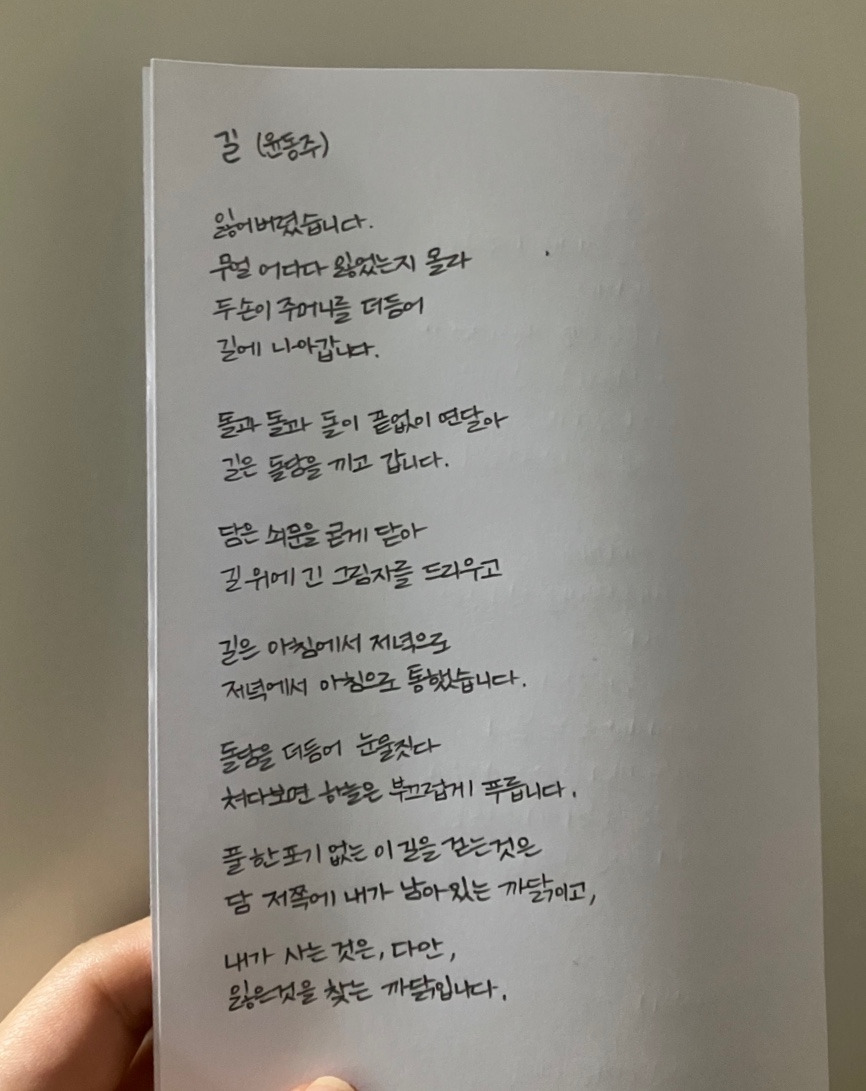 길 (윤동주)
잃어버렸습니다.
무얼 어디다 잃었는지 몰라
두손이 주머니를 더듬어
길에 나아갑니다.
돌과 돌과 돌이 끝없이 연달아
길은 돌담을 끼고 갑니다.
담은 쇠문을 굳게 닫아
길 위에 긴 그림자를 드리우고
길은 아침에서 저녁으로
저녁에서 아침으로 통했습니다.
돌담을 더듬어 눈물짓다
쳐다보면 하늘은 부끄럽게 푸릅니다.
풀 한 포기 없는 이 길을 걷는것은
담 저쪽에 내가 남아있는 까닭이고,
내가 사는 것은, 다만,
잃은것을 찾는 까닭입니다.